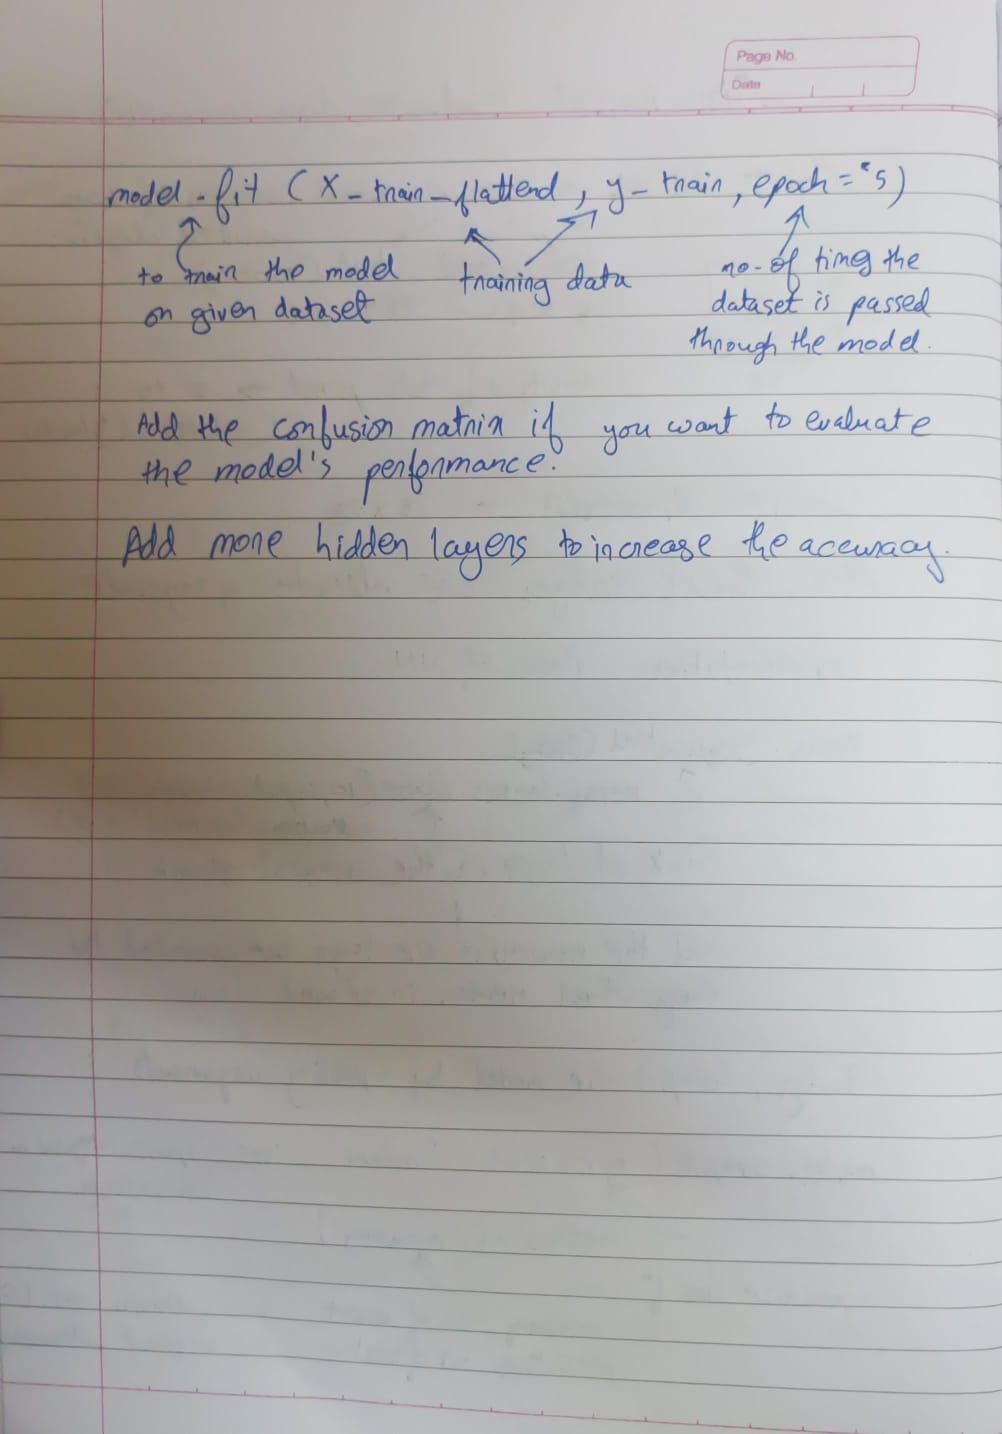 Page No.
Date
model.fit (X_train_flattend, y_train, epoch = 5)
to train the model
on given dataset
training data
no. of times the
dataset is passed
through the model.
Add the confusion matrix if you want to evaluate
the model's performance.
Add more hidden layers to increase the accuracy.